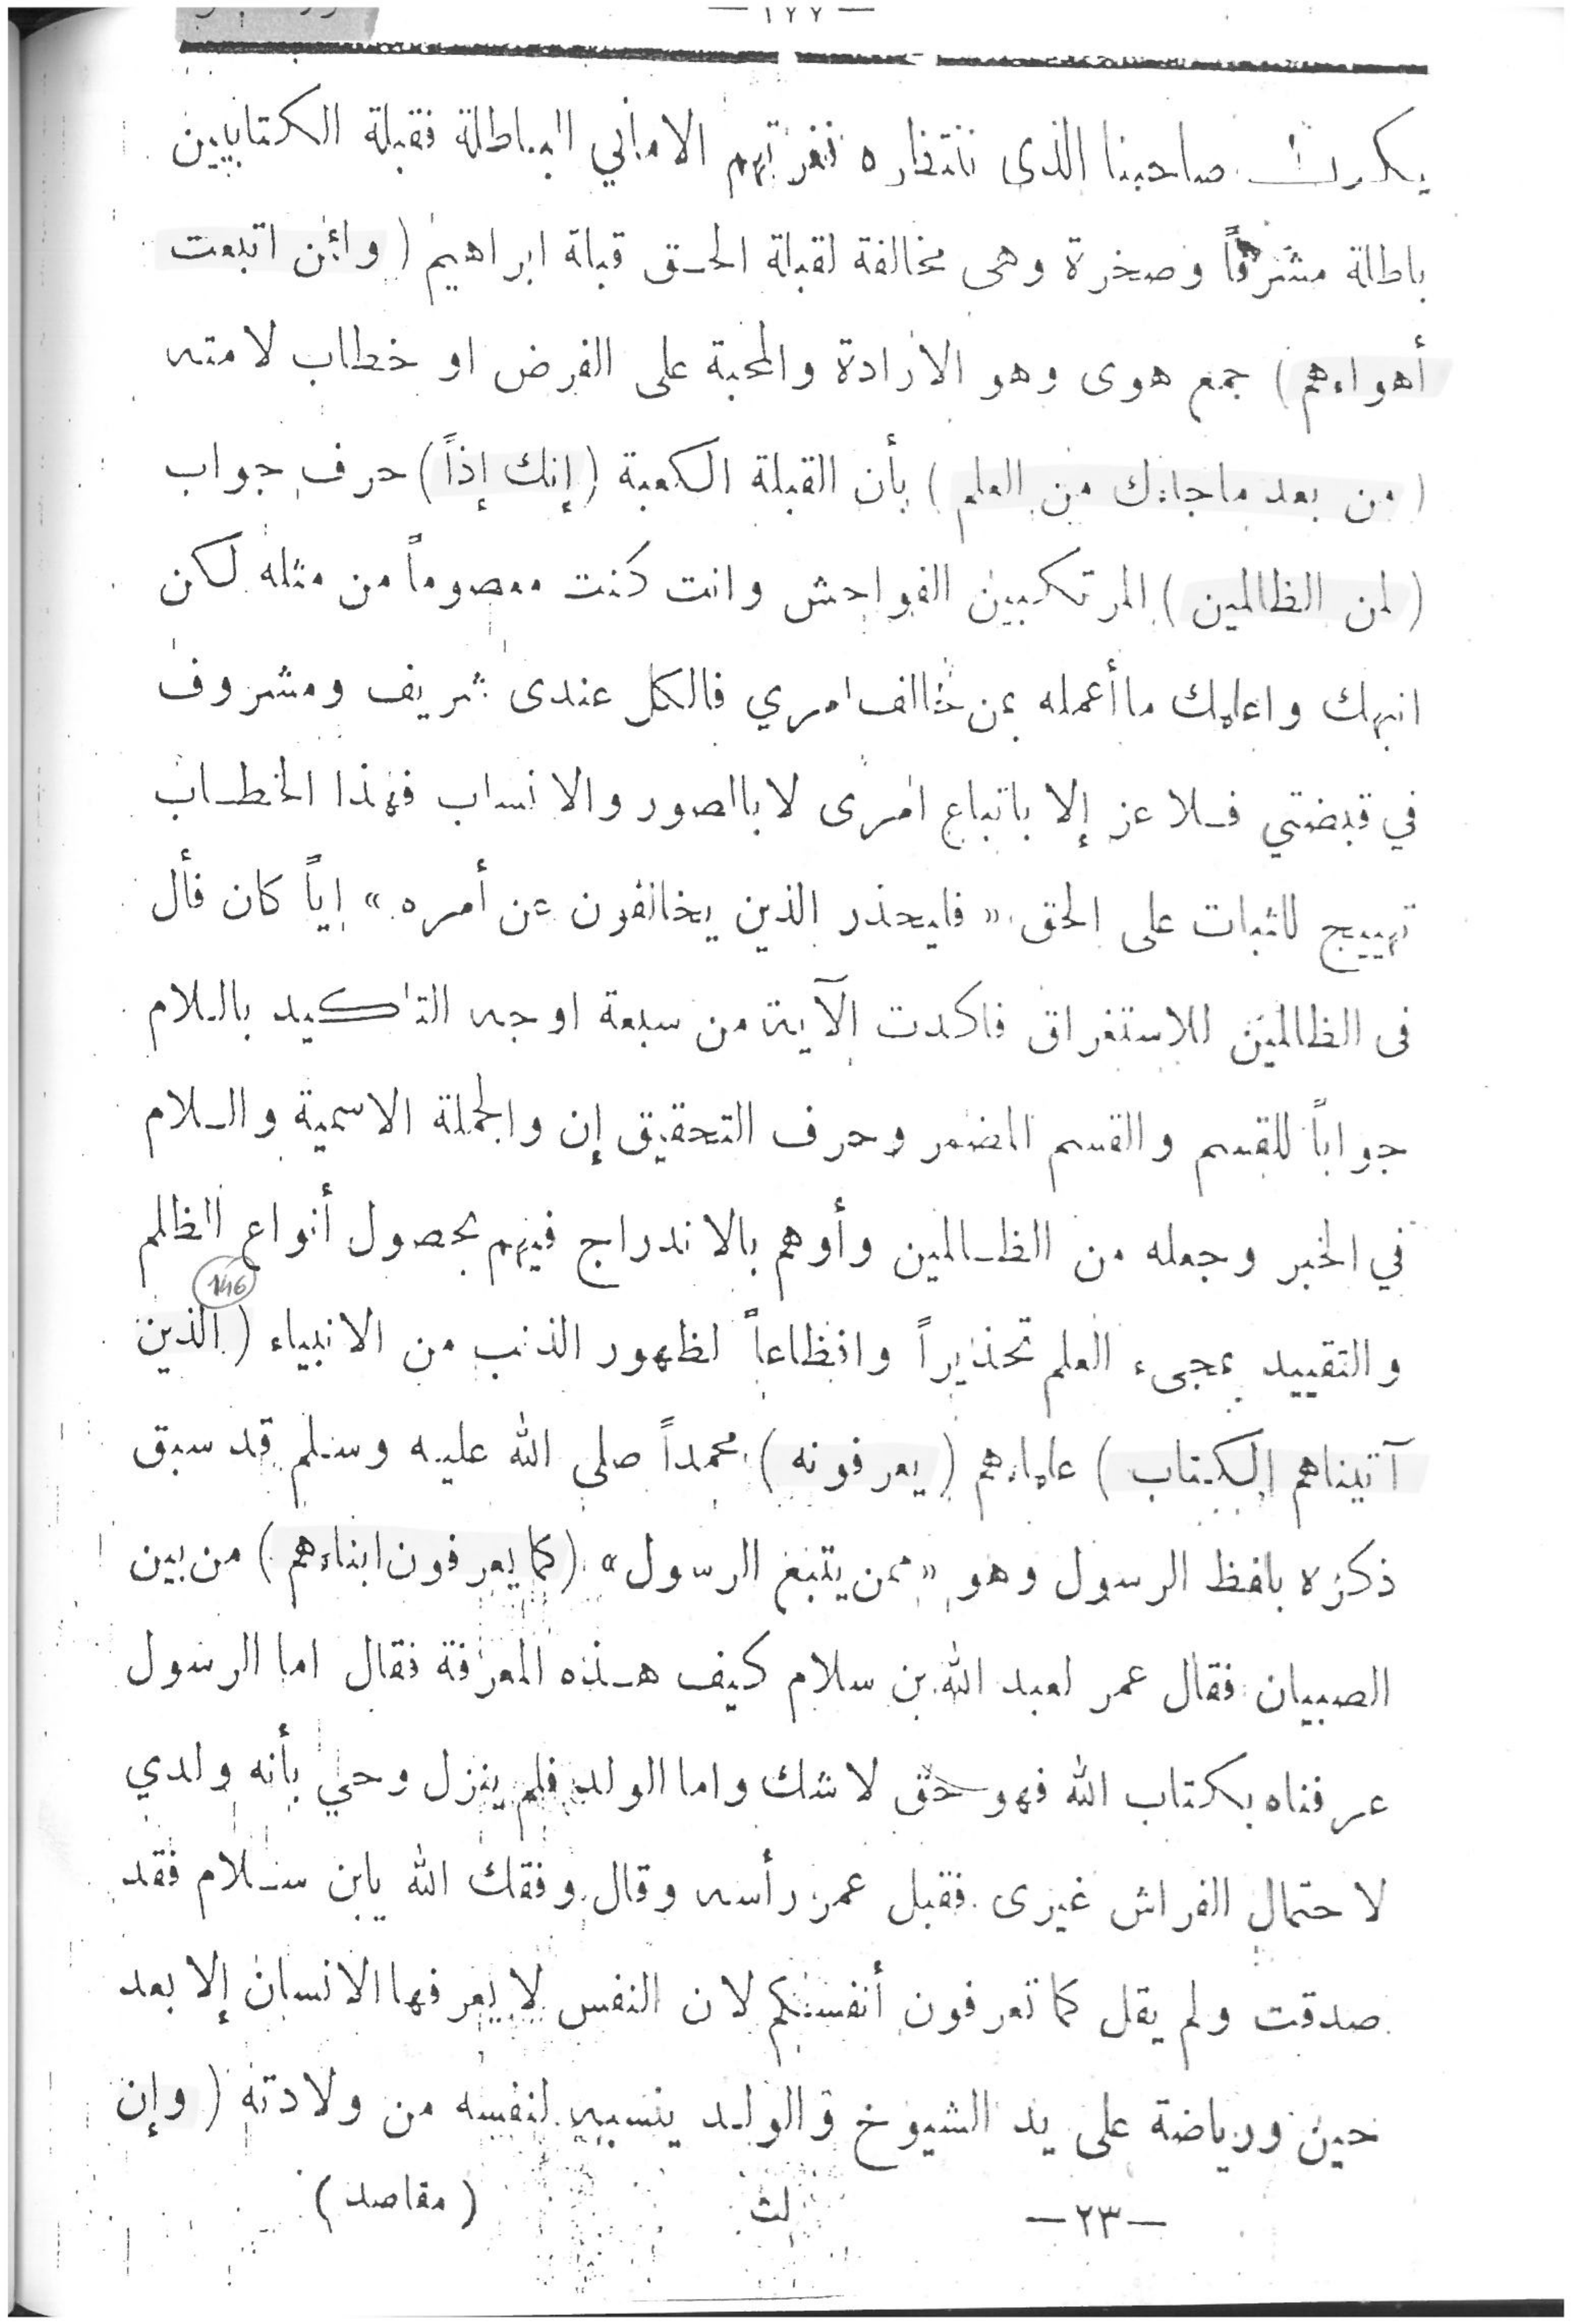 — ١٧٧ —
يكون صاحبنا الذى ننتظاره فغرتهم الامانى الباطلة فقبلة الكتابيين
باطلة مشرقاً وصخرة وهى مخالفة لقبلة الحق قبلة ابراهيم ( ولئن اتبعت
أهواءهم ) جمع هوى وهو الارادة والمحبة على الفرض او خطاب لامته
( من بعد ماجاءك من العلم ) بأن القبلة الكعبة ( إنك إذاً ) حرف جواب
( لمن الظالمين ) المرتكبين الفواحش وانت كنت معصوماً من مثله لكن
انبهك واعلمك ماأعمله بمن خالف امري فالكل عندى شريف ومشروف
في قبضتي فلا عز إلا باتباع امرى لا بالصور والانساب فهذا الخطاب
تهييج للثبات على الحق « فليحذر الذين يخالفون عن أمره » اياً كان فأل
فى الظالمين للاستغراق فاكدت الآية من سبعة اوجه التاكيد باللام
جواباً للقسم والقسم المضمر وحرف التحقيق إن والجملة الاسمية واللام
في الخبر وجعله من الظالمين وأوهم بالاندراج فيهم بحصول أنواع الظلم
146
والتقييد بمجىء العلم تحذيراً وافظاعاً لظهور الذنب من الانبياء ( الذين
آتيناهم الكتاب ) علماءهم ( يعرفونه ) محمداً صلى الله عليه وسلم قد سبق
ذكره بلفظ الرسول وهو « ممن يتبع الرسول » ( كما يعرفون ابناءهم ) من بين
الصبيان فقال عمر لعبد الله بن سلام كيف هذه المعرفة فقال اما الرسول
عرفناه بكتاب الله فهو حق لاشك واما الولد فلم ينزل وحي بأنه ولدي
لاحتمال الفراش غيرى فقبل عمر رأسه وقال وفقك الله يابن سلام فقد
صدقت ولم يقل كما تعرفون أنفسكم لان النفس لا يعرفها الانسان إلا بعد
حين ورياضة على يد الشيوخ والولد ينسبه لنفسه من ولادته ( وإن
— ٢٣ — لث ( مقاصد )